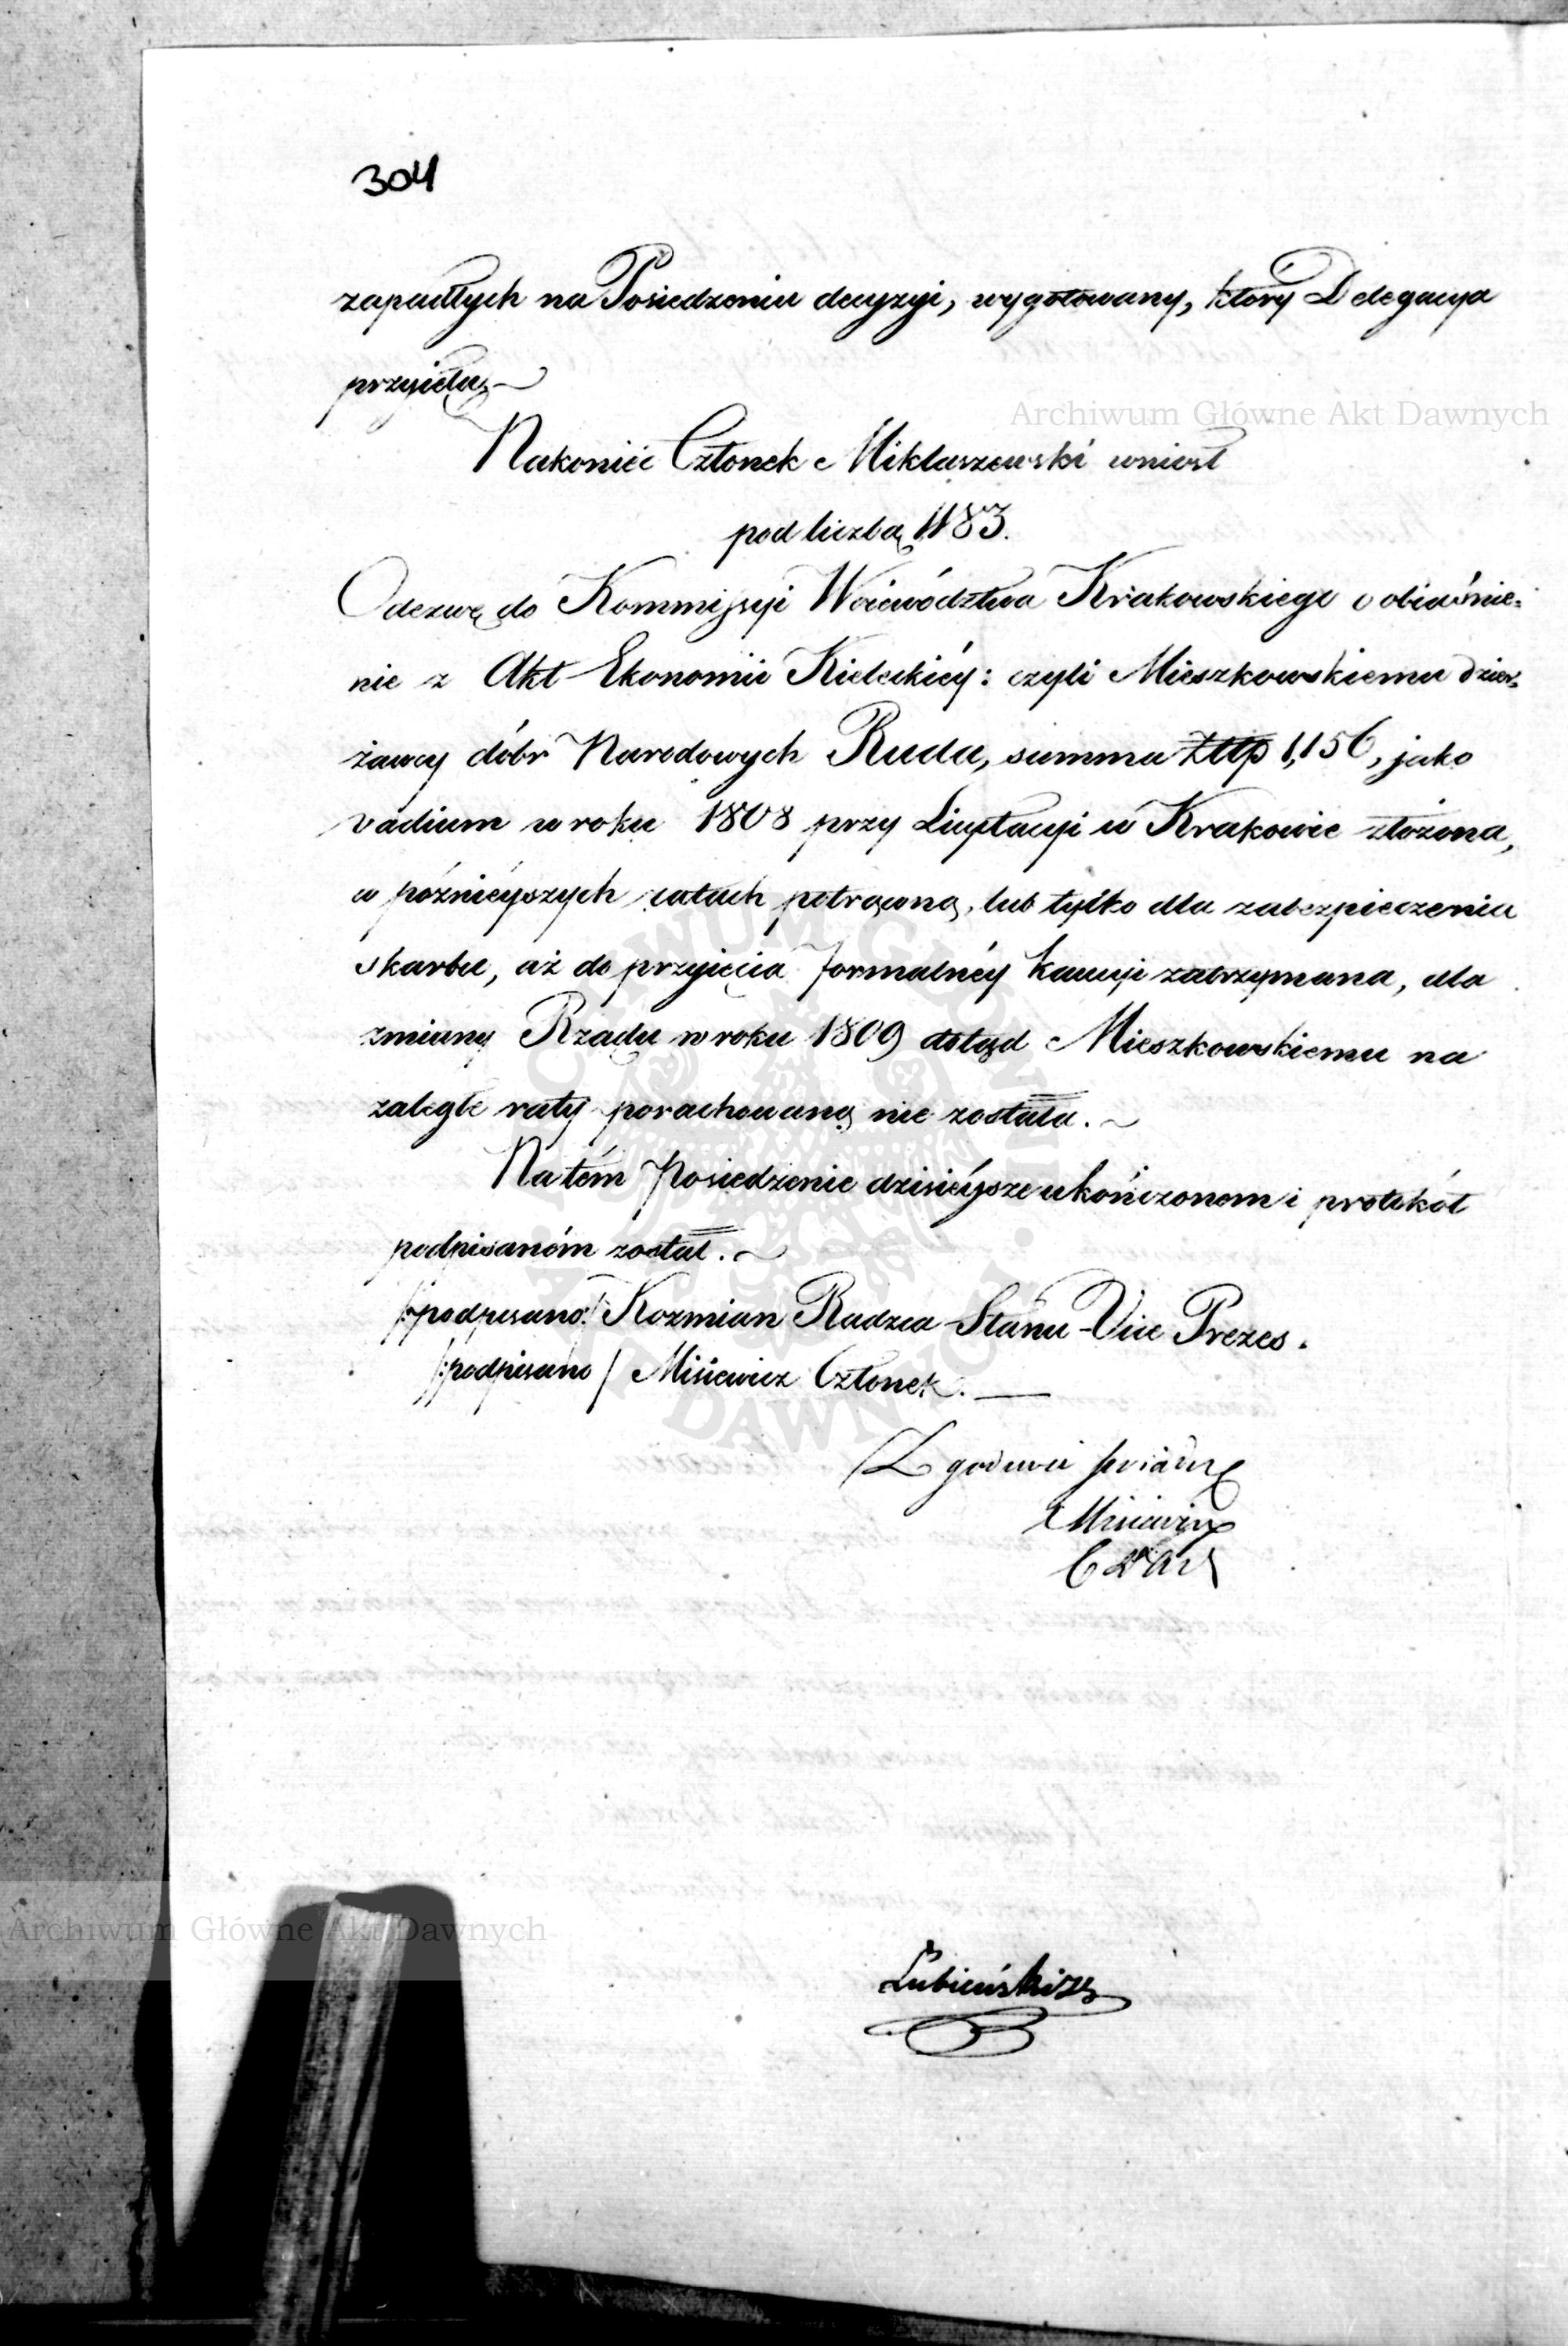 304
zapadłych na Posiedzeniu decyzyi, wygotowany, który Delegacya
przyięła.
Archiwum Główne Akt Dawnych
Nakoniec Członek Miklaszewski wniosł
pod liczbą 1183.
Odezwę do Kommissyi Woiewództwa Krakowskiego o obiaśnie=
nie z Akt Ekonomii Kieleckiéy: czyli Mieszkowskiemu dzier=
żawcy dóbr Narodowych Ruda, summa Złtp 1,156, jako
vadium w roku 1808 przy Licytacyi w Krakowie złożona,
w poźnieyszych ratach potrąconą, lub tylko dla zabezpieczenia
skarbu, aż do przyięcia formalnéy kaucyi zatrzymana, dla
zmiany Rządu w roku 1809 dotąd Mieszkowskiemu na
zaległe raty porachowaną nie została.
Na tém Posiedzenie dzisiéysze ukończonem i protokół
podpisaném został.
/:podpisano:/ Kozmian Radzca Stanu Vice Prezes.
/:podpisano/ Misiewicz Członek.
Zgodność świadczę
Misiewicz
Lubieński
Archiwum Główne Akt Dawnych